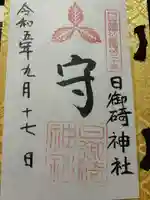 日御碕神社
守
日御碕
神社
令和五年九月十七日